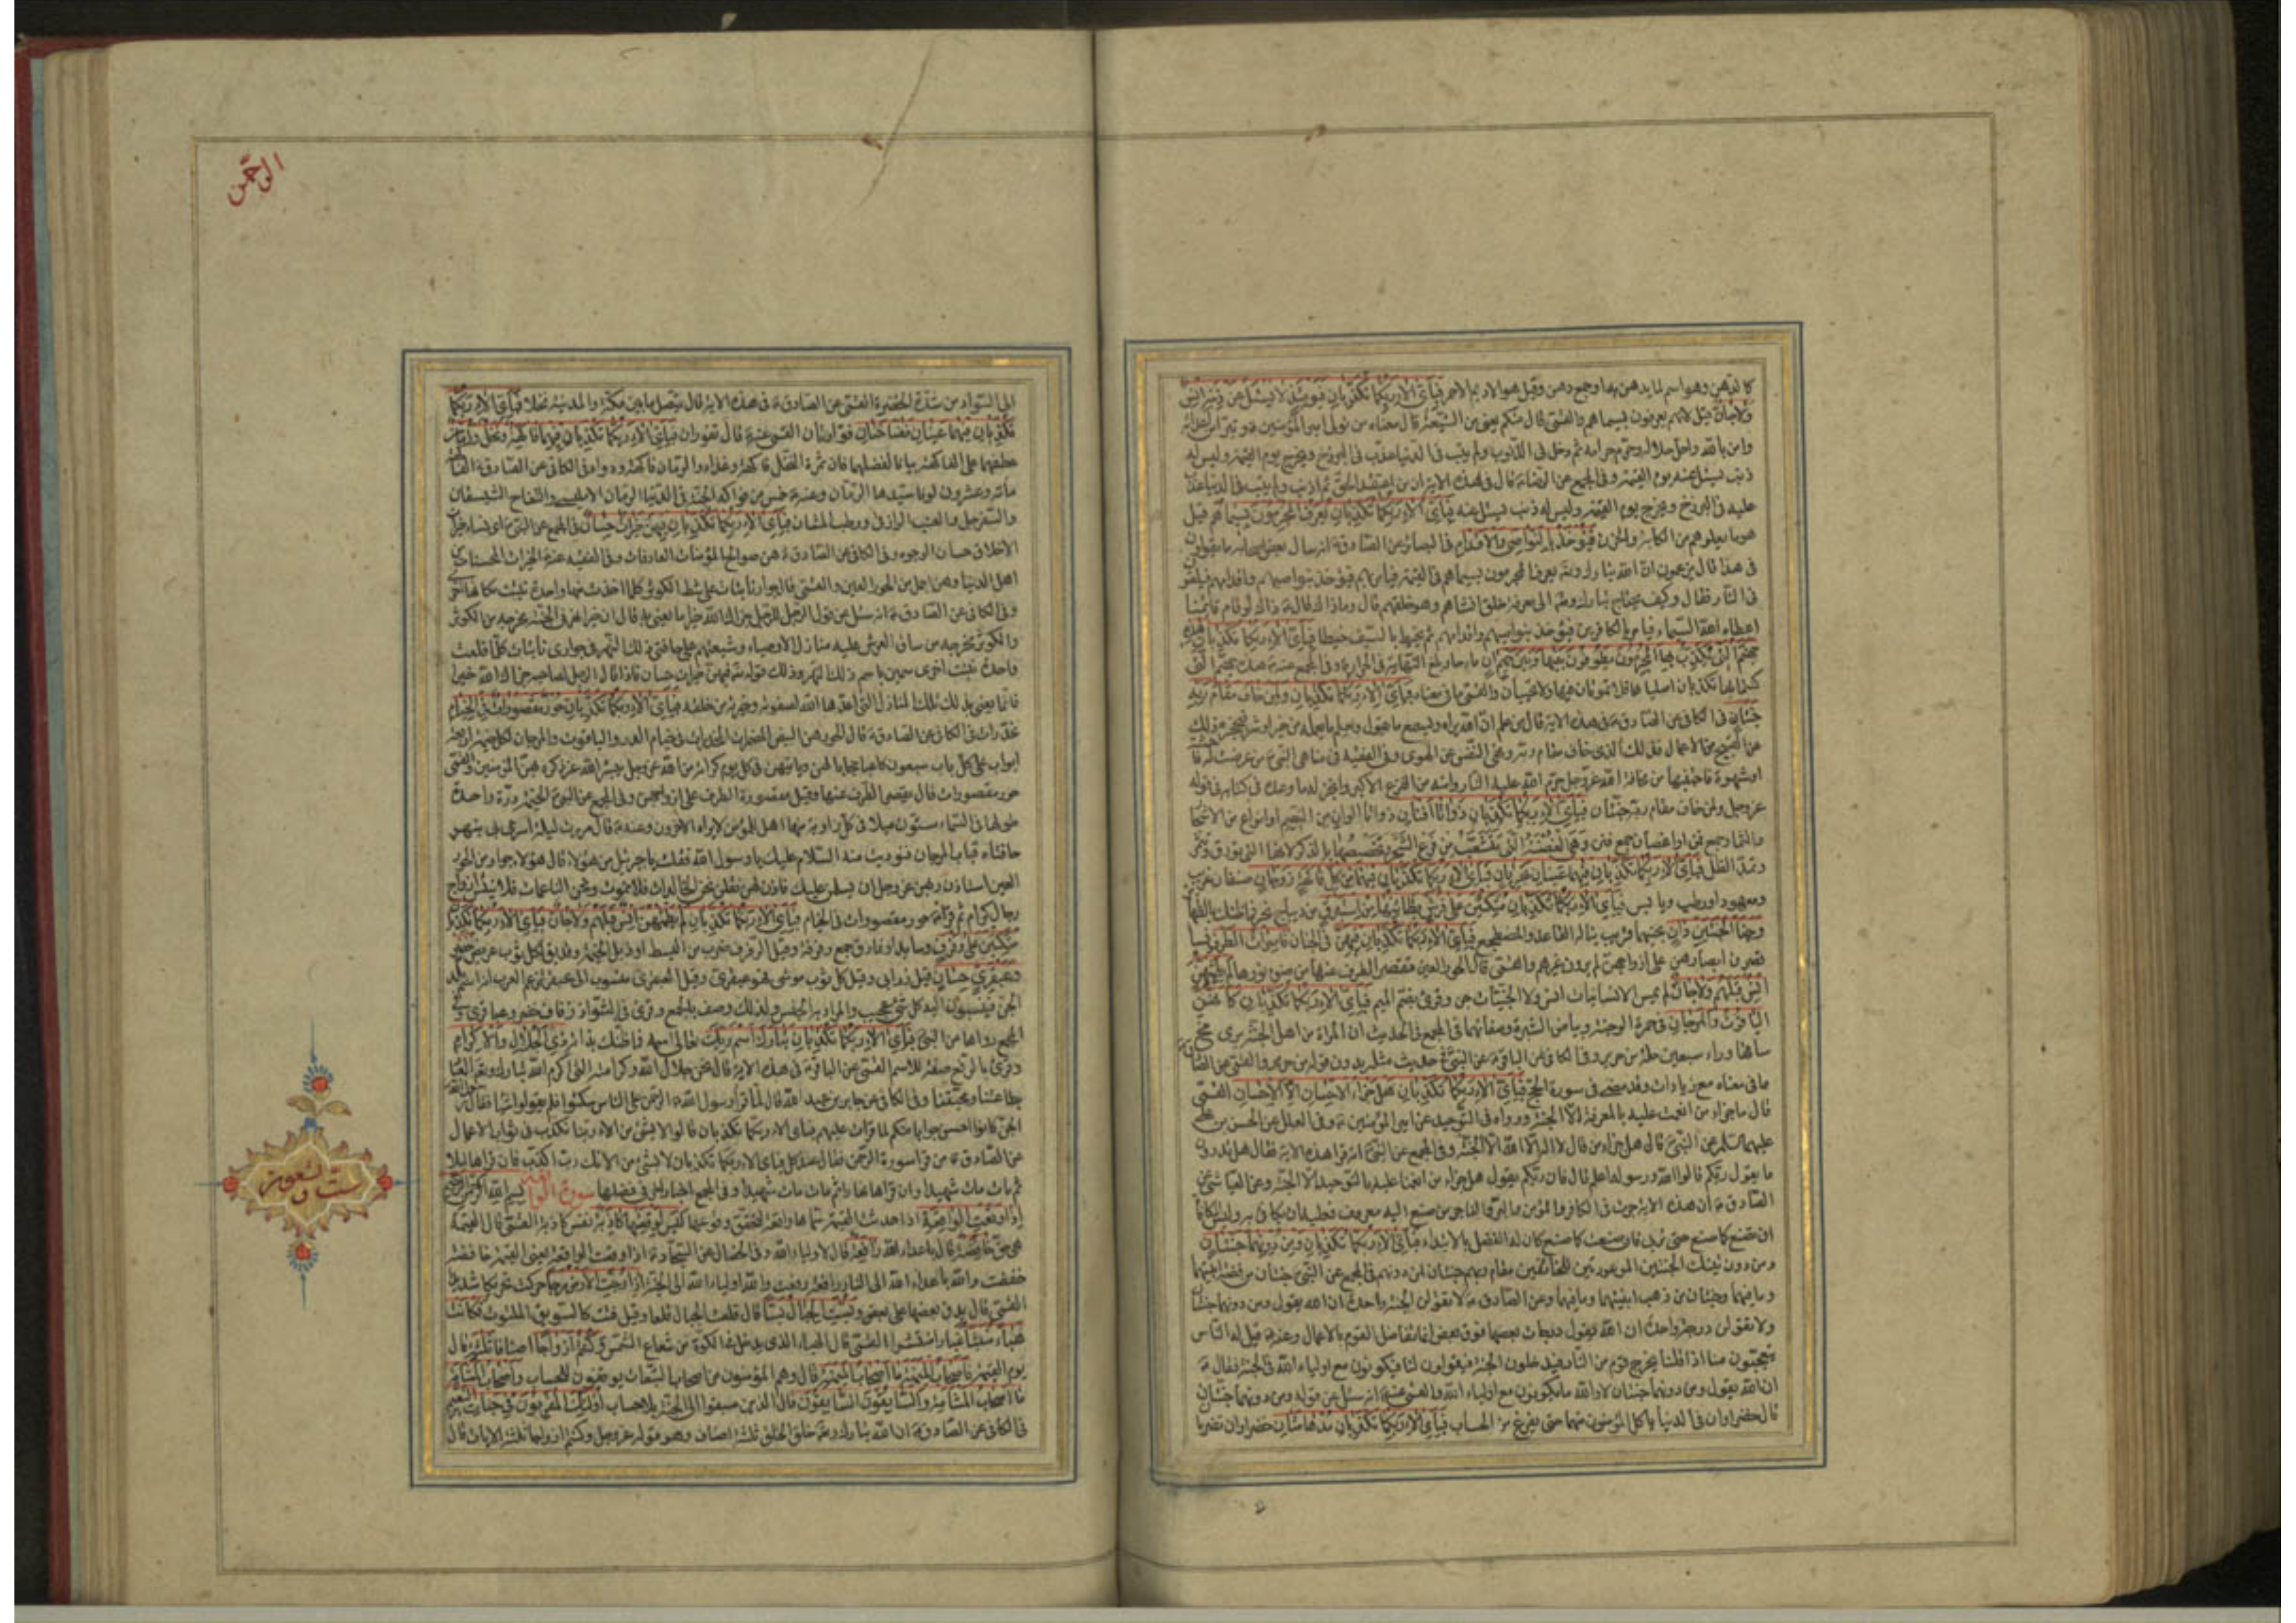 كالدهن وهو اسم لما يدهن به او جمع دهن وقيل هو الاديم الاحمر فَبِاَيِّ الاءِ رَبِّكُما تُكَذِّبانِ فَيَوْمَئِذٍ لا يُسْئَلُ عَنْ ذَنْبِه اِنْسٌ
وَلا جانٌّ قيل لانهم يعرفون بسيماهم والقمّي قال منكم يعني من الشيعة قال معناه من تولى امير المؤمنين وتبرأ من اعدائه
وامن بالله واحل حلاله وحرم حرامه ثم دخل في الذنوب ولم يتب في الدنيا عذب في البرزخ ويخرج يوم القيمة وليس له
ذنب يسئل عنه يوم القيمة وفي المجمع عن الرضا قال في هذه الاية ان من اعتقد الحق ثم اذنب ولم يتب في الدنيا عذب
عليه في البرزخ ويخرج يوم القيمة وليس له ذنب يسئل عنه فَبِاَيِّ الاءِ رَبِّكُما تُكَذِّبانِ يُعْرَفُ الْمُجْرِمُونَ بِسيماهُمْ قيل
هو ما يعلوهم من الكابة والحزن فَيُؤْخَذُ بِالنَّواصي وَالْاَقْدامِ في البصائر عن الصادق انه سال بعض اصحابه ما يقولون
في هذا قال يزعمون ان الله تبارك وتعالى يعرف المجرمون بسيماهم في القيمة فيامر بهم فيؤخذ بنواصيهم واقدامهم فيلقون
في النار فقال وكيف يحتاج تبارك وتعالى الى معرفة خلق انشاهم وهو خلقهم قال وماذاك قال ذلك لو قام قائمنا
اعطاه الله السيماء فيامر بالكافرين فيؤخذ بنواصيهم واقدامهم ثم يخبط بالسيف خبطا فَبِاَيِّ الاءِ رَبِّكُما تُكَذِّبانِ هذِه
جَهَنَّمُ الَّتي يُكَذِّبُ بِهَا الْمُجْرِمُونَ يَطُوفُونَ بَيْنَها وَبَيْنَ حَميمٍ انٍ ماء حار بلغ النهاية في الحرارة وفي المجمع عنه هذه جهنم التي
كنتما بها تكذبان اصلياها فلا تموتان فيها ولا تحييان والقمي ما في معناه فَبِاَيِّ الاءِ رَبِّكُما تُكَذِّبانِ وَلِمَنْ خافَ مَقامَ رَبِّه
جَنَّتانِ في الكافي عن الصادق في هذه الاية قال من علم ان الله يراه ويسمع ما يقول ويعلم ما يعمله من خير او شر فيحجزه ذلك
عن القبيح من الاعمال فذلك الذي خاف مقام ربه ونهى النفس عن الهوى وفي الفقيه في مناهي النبي من عرضت له فاحشة
او شهوة فاجتنبها من مخافة الله عز وجل حرم الله عليه النار وامنه من الفزع الاكبر وانجز له ما وعده في كتابه في قوله
عز وجل ولمن خاف مقام ربه جنتان فَبِاَيِّ الاءِ رَبِّكُما تُكَذِّبانِ ذَواتا اَفْنانٍ ذواتا الوان من النعيم او انواع من الاشجار
والثمار جمع فن او اغصان جمع فنن وهي الغصنة التي تتشعب من فرع الشجر وتخصيصها بالذكر لانها التي تورق وتثمر
وتمد الظل فَبِاَيِّ الاءِ رَبِّكُما تُكَذِّبانِ فيهِما عَيْنانِ تَجْرِيانِ فَبِاَيِّ الاءِ رَبِّكُما تُكَذِّبانِ فيهِما مِنْ كُلِّ فاكِهَةٍ زَوْجانِ صنفان غريب
ومعهود او رطب ويابس فَبِاَيِّ الاءِ رَبِّكُما تُكَذِّبانِ مُتَّكِئينَ عَلى فُرُشٍ بَطائِنُها مِنْ اِسْتَبْرَقٍ من ديباج ثخين فما ظنك بالظهائر
وَجَنَا الْجَنَّتَيْنِ دانٍ مجنيهما قريب يناله القاعد والمضطجع فَبِاَيِّ الاءِ رَبِّكُما تُكَذِّبانِ فيهِنَّ في الجنان قاصِراتُ الطَّرْفِ نساء
قصرن ابصارهن على ازواجهن لم يردن غيرهم والقمي قال الحور العين يقصر الطرف عنها من ضوء نورها لَمْ يَطْمِثْهُنَّ
اِنْسٌ قَبْلَهُمْ وَلا جانٌّ لم يمس الانسيات انس ولا الجنيات جن وقرئ بضم الميم فَبِاَيِّ الاءِ رَبِّكُما تُكَذِّبانِ كَاَنَّهُنَّ
الْياقُوتُ وَالْمَرْجانُ في حمرة الوجنة وبياض البشرة وصفائهما في المجمع في الحديث ان المراة من اهل الجنة يرى مخ
ساقها وراء سبعين حلة من حرير وفي الكافي عن الباقر عن النبي في حديث مثله بدون قوله من حرير والقمي عن الصادق
ما في معناه مع زيادات وقد مضى في سورة الحج فَبِاَيِّ الاءِ رَبِّكُما تُكَذِّبانِ هَلْ جَزاءُ الْاِحْسانِ اِلَّا الْاِحْسانُ القمي
قال ما جزاء من انعمت عليه بالمعرفة الا الجنة ورواه في التوحيد عن امير المؤمنين وفي العلل عن الحسن بن علي
عليهما السلم عن النبي قال هل جزاء من قال لا اله الا الله الا الجنة وفي المجمع عن النبي انه قرا هذه الاية فقال هل تدرون
ما يقول ربكم قالوا الله ورسوله اعلم قال فان ربكم يقول هل جزاء من انعمنا عليه بالتوحيد الا الجنة وعن العياشي عن
الصادق ان هذه الاية جرت في الكافر والمؤمن والبر والفاجر من صنع اليه معروف فعليه ان يكافئ به وليس المكافاة
ان تصنع كما صنع حتى تربي فان صنعت كما صنع كان له الفضل بالابتداء فَبِاَيِّ الاءِ رَبِّكُما تُكَذِّبانِ وَمِنْ دُونِهِما جَنَّتانِ
ومن دون تينك الجنتين الموعودتين للخائفين مقام ربهم جنتان لمن دونهم في المجمع عن النبي جنتان من فضة ابنيتهما
وما فيهما وجنتان من ذهب ابنيتهما وما فيهما وعن الصادق لا تقولن الجنة واحدة ان الله يقول ومن دونهما جنتان
ولا تقولن درجة واحدة ان الله يقول درجات بعضها فوق بعض انما تفاضل القوم بالاعمال وعنه قيل له الناس
يتعجبون منا اذا قلنا يخرج قوم من النار فيدخلون الجنة فيقولون لنا فيكونون مع اولياء الله في الجنة فقال
ان الله يقول ومن دونهما جنتان لا والله ما يكونون مع اولياء الله والقمي عنه انه سئل عن قوله ومن دونهما جنتان
قال خضراوان في الدنيا ياكل المؤمنون منهما حتى يفرغ من الحساب فَبِاَيِّ الاءِ رَبِّكُما تُكَذِّبانِ مُدْهامَّتانِ خضراوان تضربان
الرحمن
الى السواد من شدة الخضرة القمي عن الصادق في هذه الاية قال يتصل ما بين مكة والمدينة نخلا فَبِاَيِّ الاءِ رَبِّكُما
تُكَذِّبانِ فيهِما عَيْنانِ نَضَّاخَتانِ فوارتان القمي عنه قال تفوران فَبِاَيِّ الاءِ رَبِّكُما تُكَذِّبانِ فيهِما فاكِهَةٌ وَنَخْلٌ وَرُمَّانٌ
عطفهما على الفاكهة بيانا لفضلهما فان ثمرة النخل فاكهة وغذاء والرمان فاكهة ودواء في الكافي عن الصادق الفاكهة
مائة وعشرون لونا سيدها الرمان وعنه خمس من فواكه الجنة في الدنيا الرمان الامليسي والتفاح الشيسقان
والسفرجل والعنب الرازقي والرطب المشان فَبِاَيِّ الاءِ رَبِّكُما تُكَذِّبانِ فيهِنَّ خَيْراتٌ حِسانٌ في المجمع عن النبي اي نساء خيرات
الاخلاق حسان الوجوه وفي الكافي عن الصادق هن صوالح المؤمنات العارفات وفي الفقيه عنه الخيرات الحسان من
اهل الدنيا وهن اجمل من الحور العين والقمي قال جوار نابتات على شط الكوثر كلما اخذت منها واحدة نبتت مكانها اخرى
وفي الكافي عن الصادق انه سئل عن قول الرجل للرجل جزاك الله خيرا ما يعني به قال ان خيرا نهر في الجنة مخرجه من الكوثر
والكوثر مخرجه من ساق العرش عليه منازل الاوصياء وشيعتهم على حافتي ذلك النهر جواري نابتات كلما قلعت
واحدة نبتت اخرى سمين باسم ذلك النهر وذلك قوله تعالى فيهن خيرات حسان فاذا قال الرجل لصاحبه جزاك الله خيرا
فانما يعني بذلك تلك المنازل التي اعدها الله لصفوته وخيرته من خلقه فَبِاَيِّ الاءِ رَبِّكُما تُكَذِّبانِ حُورٌ مَقْصُوراتٌ فِي الْخِيامِ
مخدرات في الكافي عن الصادق قال الحور هن البيض المضمرات المخدرات في خيام الدر والياقوت والمرجان لكل خيمة اربعة
ابواب على كل باب سبعون كاعبا حجابا لهن وياتيهن في كل يوم كرامة من الله عز وجل يبشر الله عز ذكره بهن المؤمنين والقمي
حور مقصورات قال يقصر الطرف عنها وقيل مقصورة الطرف على ازواجهن وفي المجمع عن النبي الخيمة درة واحدة
طولها في السماء ستون ميلا في كل زاوية منها اهل للمؤمن لا يراه الاخرون وعنه قال مررت ليلة اسري بي بنهر
حافتاه قباب المرجان فنوديت منه السلام عليك يا رسول الله فقلت يا جبرئيل من هؤلاء قال هؤلاء جوار من الحور
العين استاذن ربهن عز وجل ان يسلمن عليك فاذن لهن فقلن نحن الخالدات فلا نموت ونحن الناعمات فلا نيأس ازواج
رجال كرام ثم قرأ حور مقصورات في الخيام فَبِاَيِّ الاءِ رَبِّكُما تُكَذِّبانِ لَمْ يَطْمِثْهُنَّ اِنْسٌ قَبْلَهُمْ وَلا جانٌّ فَبِاَيِّ الاءِ رَبِّكُما تُكَذِّبانِ
مُتَّكِئينَ عَلى رَفْرَفٍ وسائد او نمارق جمع رفرفة وقيل الرفرف ضرب من البسط او ذيل الخيمة وقد يق لكل ثوب عريض خُضْرٍ
وَعَبْقَرِيٍّ حِسانٍ قيل زرابي وقيل كل ثوب موشى فهو عبقري وقيل العبقري منسوب الى عبقر تزعم العرب انه اسم بلد
الجن فينسبون اليه كل شئ عجيب والمراد به الجنس ولذلك وصف بالجمع وقرئ في الشواذ رفارف خضر وعباقري وفي
المجمع رواها عن النبي فَبِاَيِّ الاءِ رَبِّكُما تُكَذِّبانِ تَبارَكَ اسْمُ رَبِّكَ تعالى اسمه فما ظنك بذاته ذِي الْجَلالِ وَالْاِكْرامِ
وقرئ بالرفع صفة للاسم القمي عن الباقر في هذه الاية قال نحن جلال الله وكرامته التي اكرم الله تبارك وتعالى العباد
بطاعتنا ومحبتنا وفي الكافي عن جابر بن عبد الله قال لما قرأ رسول الله الرحمن على الناس سكتوا فلم يقولوا شيئا فقال
الجن كانوا احسن جوابا منكم لما قرات عليهم فباي الاء ربكما تكذبان قالوا لا بشئ من الاء ربنا نكذب في ثواب الاعمال
عن الصادق من قرا سورة الرحمن فقال عند كل فباي الاء ربكما تكذبان لا بشئ من الائك رب اكذب فان قراها ليلا
ثم مات مات شهيدا وان قراها نهارا ثم مات مات شهيدا وفي المجمع اخبار اخر في فضلها سورة الواقعة بسم الله الرحمن الرحيم
اِذا وَقَعَتِ الْواقِعَةُ اذا حدثت القيمة سماها واقعة لتحقق وقوعها لَيْسَ لِوَقْعَتِها كاذِبَةٌ نفس كاذبة القمي قال القيمة
هي حق خافِضَةٌ قال باعداء الله رافِعَةٌ قال لاولياء الله وفي الخصال عن السجاد اذا وقعت الواقعة يعني القيمة خافضة
خفضت والله باعداء الله الى النار رافعة رفعت والله اولياء الله الى الجنة اِذا رُجَّتِ الْاَرْضُ رَجًّا حركت تحريكا شديدا
القمي قال يدق بعضها على بعض وَبُسَّتِ الْجِبالُ بَسًّا قال قلعت الجبال قلعا وقيل فتت كالسويق الملتوت فَكانَتْ
هَباءً مُنْبَثًّا غبارا منتشرا القمي قال الهباء الذي يدخل في الكوة من شعاع الشمس وَكُنْتُمْ اَزْواجًا اصنافا ثَلثَةً قال
يوم القيمة فَاَصْحابُ الْمَيْمَنَةِ ما اَصْحابُ الْمَيْمَنَةِ قال وهم المؤمنون من اصحاب التبعات يوقفون للحساب وَاَصْحابُ الْمَشْئَمَةِ
ما اَصْحابُ الْمَشْئَمَةِ وَالسَّابِقُونَ السَّابِقُونَ قال الذين سبقوا الى الجنة بلا حساب اُولئِكَ الْمُقَرَّبُونَ في جَنَّاتِ النَّعيمِ
في الكافي عن الصادق ان الله تبارك وتعالى خلق الخلق ثلثة اصناف وهو قوله عز وجل وكنتم ازواجا ثلثة الايات قال